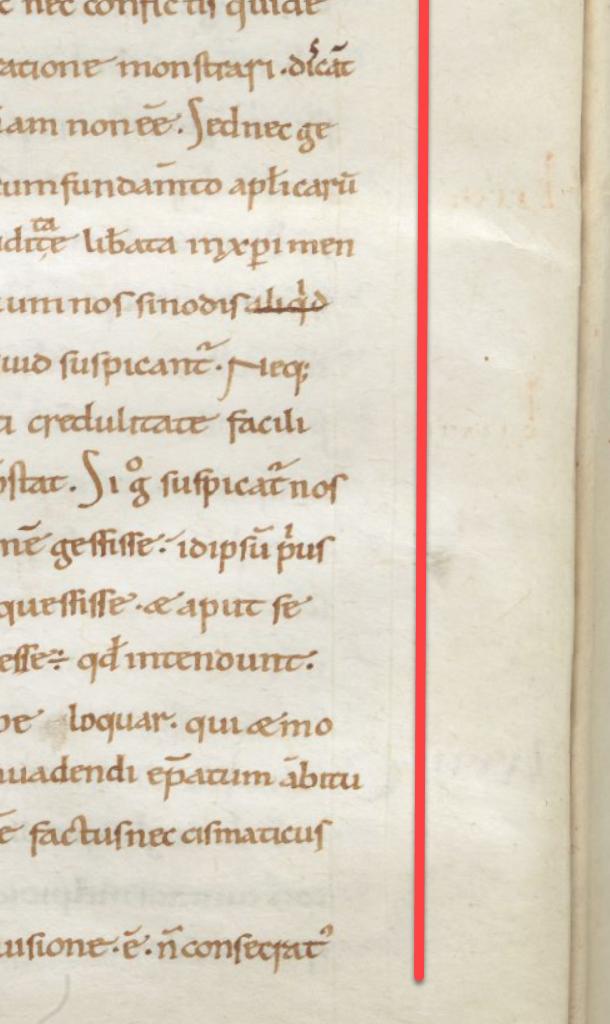 nec conficus quide
ratione monstrari. dicat̄
iam non eē. Sed nec ge
cum fundam̄to apl̄icarū
libata in xp̄i men
cum nos sinodis aliqd
suspicant᷑. Neq;
credulitate facili
stat. Si gͦ suspicat᷑ nos
nē gessisse. id ipsū pͥus
quessisse. & aput se
esse÷ qd̄ intendunt.
loquar. qui & mo
uadendi ep̄atum ābitu
ē factus nec cismaticus
usione. ē. n̄ consecrat᷑